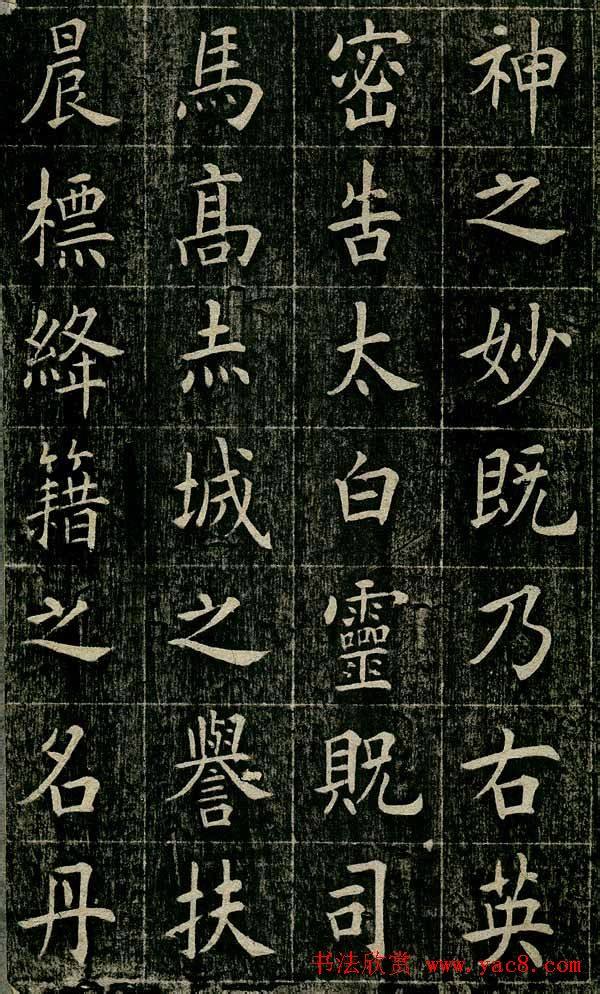 神之妙既乃右英
密告太白靈貺司
馬高赤城之譽扶
晨標絳籍之名丹
书法欣赏 www.yac8.com